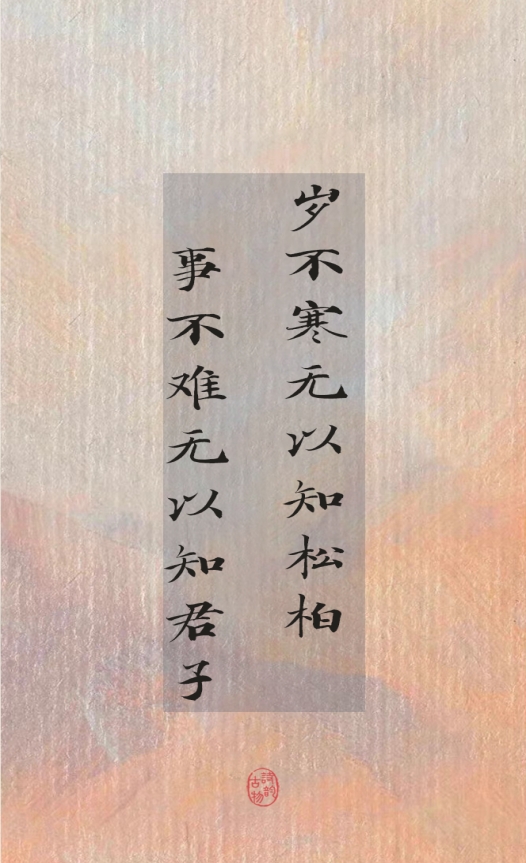 岁不寒无以知松柏
事不难无以知君子
诗韵古物